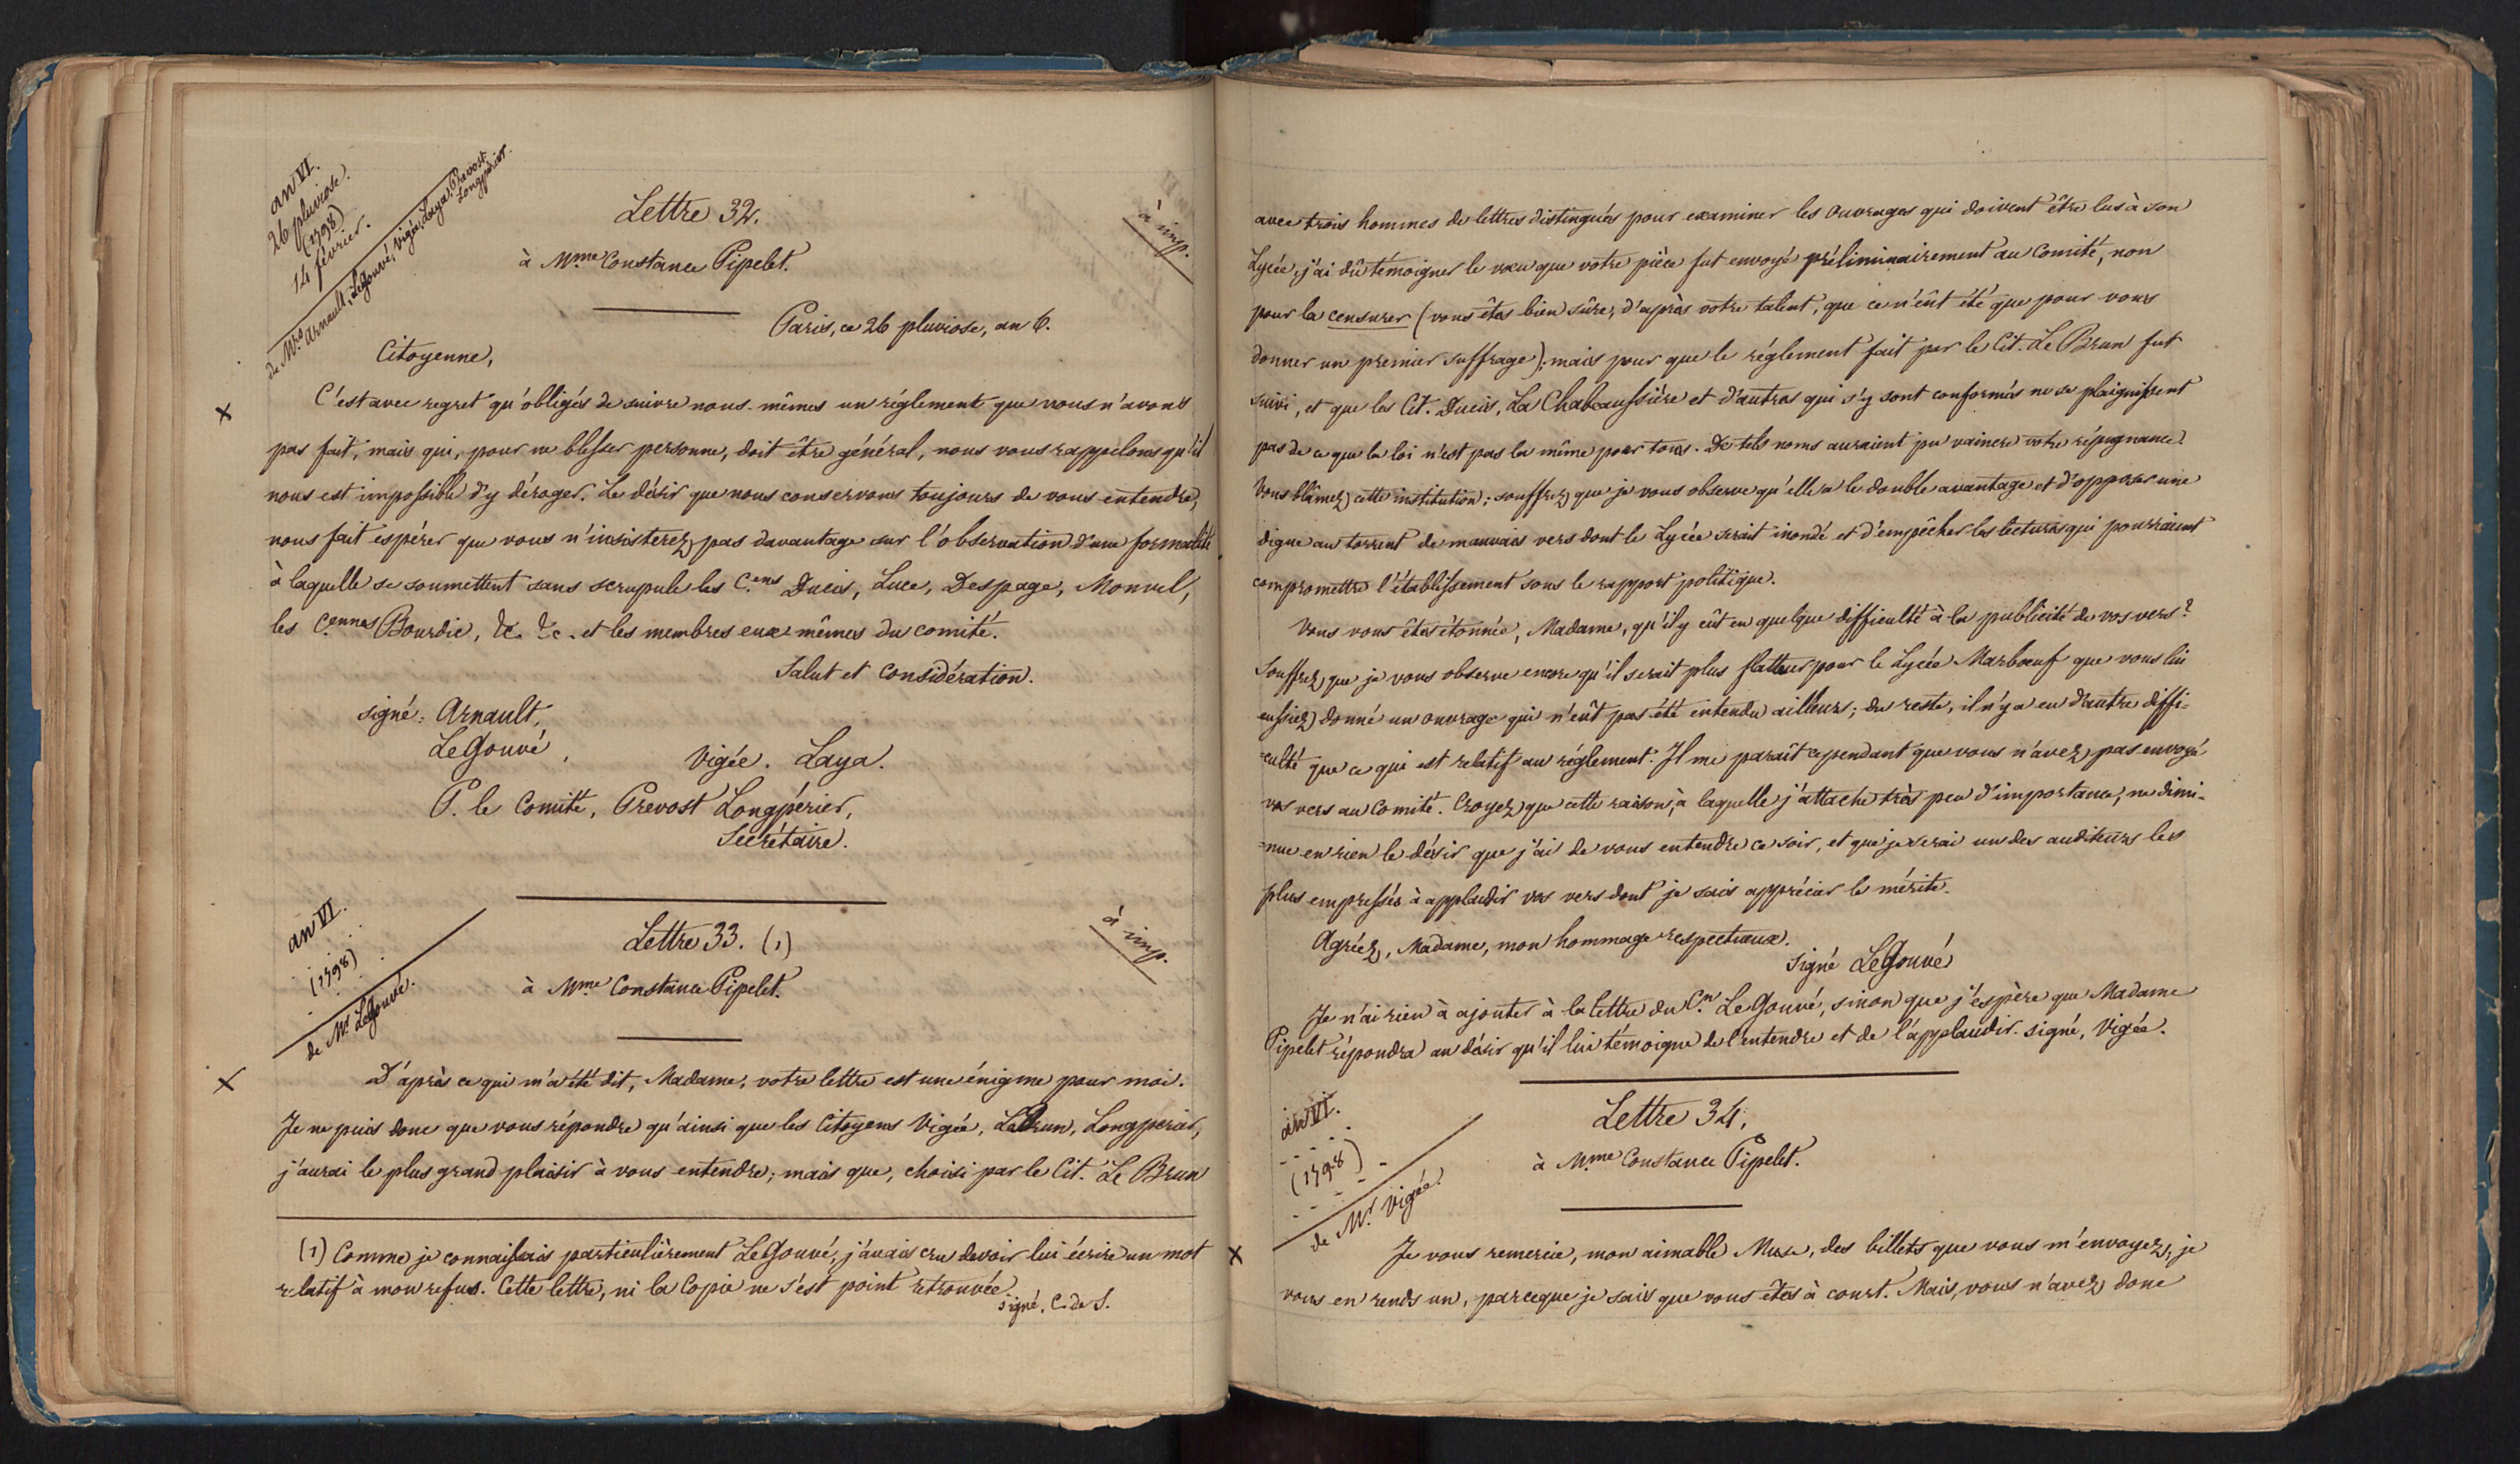 an VI.
26 pluviose.
(1798)
14 février.
de Mrs. Arnault, LeGouvé, Vigée, Laya, Prevost
Longpérier.
Lettre 32.
à imp.
à Mme Constance Pipelet.
Paris, ce 26 pluviose, an 6.
Citoyenne,
C'est avec regret qu'obligés de suivre nous-mêmes un réglement que nous n'avons
pas fait, mais qui, pour ne blesser personne, doit être général, nous vous rappelons qu'il
nous est impossible d'y déroger. Le désir que nous conservons toujours de vous entendre,
nous fait espérer que vous n'insisterez pas davantage sur l'observation d'une formalité
à laquelle se soumettent sans scrupule les C.ens Ducis, Luce, Despaze, Monvel,
les C.ennes Bourdic, &c. &c. et les membres eux mêmes du comité.
Salut et considération.
signé: Arnault,
LeGouvé,
Vigée. Laya.
P. le Comité, Prevost Longpérier,
Secrétaire.
an VI.
(1798)
de Mr. LeGouvé.
Lettre 33. (1)
à imp.
à Mme Constance Pipelet.
D'après ce qui m'a été dit, Madame, votre lettre est une énigme pour moi.
Je ne puis donc que vous répondre qu'ainsi que les Citoyens Vigée, LeBrun, Longperier,
j'aurai le plus grand plaisir à vous entendre; mais que, choisi par le Cit. Le Brun
(1) Comme je connaissais particulièrement LeGouvé, j'avais cru devoir lui écrire un mot
relatif à mon refus. Cette lettre, ni la Copie ne s'est point retrouvée.
signé, C. de S.
avec trois hommes de lettres distingués pour examiner les ouvrages qui doivent être lus à son
Lycée, j'ai dû témoigner le vœu que votre pièce fut envoyé préliminairement au Comité, non
pour la censurer (vous êtes bien sûre, d'après votre talent, que ce n'eût été que pour vous
donner un premier suffrage); mais pour que le réglement fait par le Cit. Le Brun fut
suivi, et que les Cit. Ducis, La Chabeaussière et d'autres qui s'y sont conformés ne se plaignissent
pas de ce que la loi n'est pas la même pour tous. De tels noms auraient pu vaincre votre répugnance.
Vous blâmez cette institution; souffrez que je vous observe qu'elle a le double avantage et d'opposer une
digue au torrent de mauvais vers dont le Lycée serait inondé et d'empêcher les lectures qui pourraient
compromettre l'établissement sous le rapport politique.
Vous vous êtes étonnée, Madame, qu'il y eût eu quelque difficulté à la publicité de vos vers?
Souffrez que je vous observe encore qu'il serait plus flatteur pour le Lycée Marbœuf que vous lui
eussiez donné un ouvrage qui n'eût pas été entendu ailleurs; du reste, il n'y a eu d'autre diffi=
=culté que ce qui est relatif au réglement. Il me paraît cependant que vous n'avez pas envoyé
vos vers au Comité. Croyez que cette raison, à laquelle j'attache très peu d'importance, ne dimi=
=nue en rien le désir que j'ai de vous entendre ce soir, et que je serai un des auditeurs les
plus empressés à applaudir vos vers dont je sais apprécier le mérite.
Agréez, Madame, mon hommage respectueux.
signé LeGouvé
Je n'ai rien à ajouter à la lettre du C.n LeGouvé, sinon que j'espère que Madame
Pipelet répondra au désir qu'il lui témoigne de l'entendre et de l'applaudir. signé, Vigée.
an VI.
(1798)
de Mr. Vigée.
Lettre 34.
à Mme Constance Pipelet.
Je vous remercie, mon aimable Muse, des billets que vous m'envoyez, je
vous en rends un, parceque je sais que vous êtes à court. Mais, vous n'avez donc